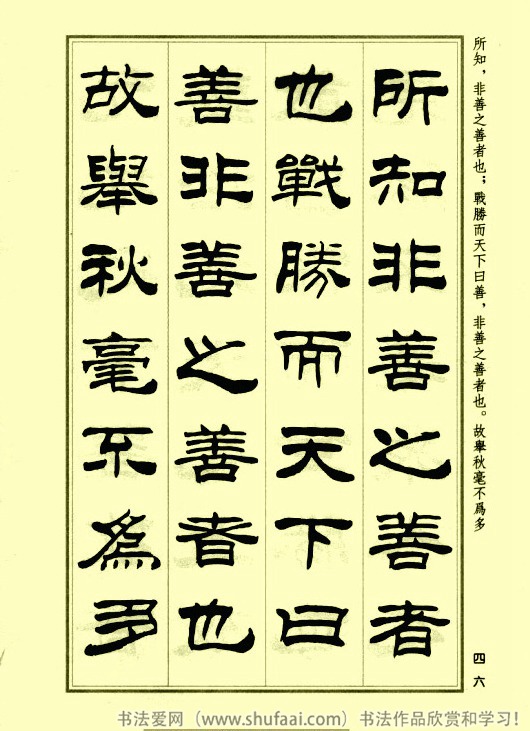 所知，非善之善者也；戰勝而天下曰善，非善之善者也。故舉秋毫不爲多
所知非善之善者
也戰勝而天下曰
善非善之善者也
故舉秋毫不爲多
四六
书法爱网（www.shufaai.com）书法作品欣赏和学习！